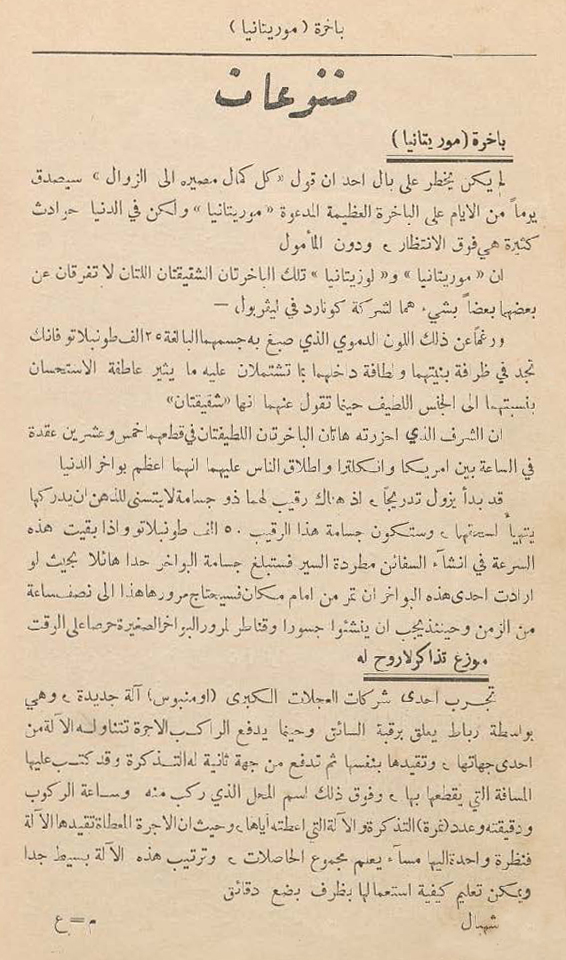 باخرة (موريتانيا)
متنوعات
باخرة (موريتانيا)
لم يكن يخطر على بال احد ان قول «كل كمال مصيره الى الزوال» سيصدق
يوماً من الايام على الباخرة العظيمة المدعوة «موريتانيا» ولكن في الدنيا حوادث
كثيرة هي فوق الانتظار ، ودون المأمول
ان «موريتانيا» و«لوزيتانيا» تلك الباخرتان الشقيقتان اللتان لا تفرقان عن
بعضهما بعضاً بشيء هما لشركة كونارد في ليڤربول، —
ورغماً عن ذلك اللون الدموي الذي صبغ به جسمهما البالغة ٢٥ الف طونيلاتو فانك
تجد في ظرافة بنيتهما ولطافة داخلهما بما تشتملان عليه ما يثير عاطفة الاستحسان
بنسبتهما الى الجنس اللطيف حينما تقول عنهما انها «شقيقتان»
ان الشرف الذي احزرته هاتان الباخرتان اللطيفتان في قطعهما خمس وعشرين عقدة
في الساعة بين امريكا وانكلترا واطلاق الناس عليهما انهما اعظم بواخر الدنيا
قد بدأ يزول تدريجاً ، اذ هناك رقيب لهما ذو جسامة لا يتسنى للذهن ان يدركها
يتهيأ لسحقهما ، وستكون جسامة هذا الرقيب ٥٠ الف طونيلاتو واذا بقيت هذه
السرعة في انشآء السفائن مطردة السير فستبلغ جسامة البواخر حدا هائلا بحيث لو
ارادت احدى هذه البواخر ان تمر من امام مكان فسيحتاج مرورها هذا الى نصف ساعة
من الزمن وحينئذ يجب ان ينشئوا جسورا وقناطر لمرور البواخر الصغيرة حرصا على الوقت
موزع تذاكر لا روح له
تجرب احدى شركات العجلات الكبرى (اومنبوس) آلة جديدة ، وهي
بواسطة رباط يعلق برقبة السائق وحينما يدفع الراكب الاجرة تتناوله الآلة من
احدى جهاتها ، وتقيدها بنفسها ثم تدفع من جهة ثانية له التذكرة وقد كتب عليها
المسافة التي يقطعها بها ، وفوق ذلك اسم المحل الذي ركب منه وساعة الركوب
ودقيقته وعدد (نمرة) التذكرة والآلة التي اعطته اياها ، وحيث ان الاجرة المعطاة تقيدها الآلة
فنظرة واحدة اليها مسآء يعلم مجموع الحاصلات ، وترتيب هذه الآلة بسيط جدا
ويمكن تعليم كيفية استعمالها بظرف بضع دقائق
شهبال م=ع